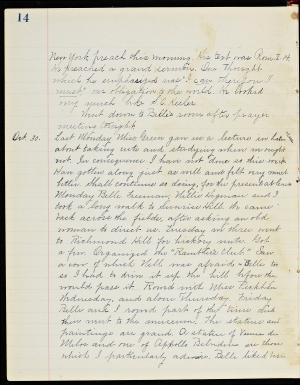 14
New York preach this morning. His text was Rom. I. 14.
He preached a grand sermon. One thought
which he emphasized was "I can therefore I
must" as obligation to the world. He looked
very much like S. C. Keeler.
Went down to Belle's room after prayer
meeting tonight.
Oct. 30. Last Monday Miss Green gave us a lecture in hall
about taking cuts and studying when we ought
not. In consequence I have not done so this week.
Have gotten along just as well and felt very much
better. Shall continue so doing, for the present at least.
Monday Belle Freeman, Millie Hegeman and I
took a long walk to Sunrise Hill. We came
back across the fields, after asking an old
woman to direct us. Tuesday we three went
to Richmond Hill for hickory nuts. Got
a few. Organized the "Ramblers Club". Saw
a cow of which Mill was afraid & Belle &
so I had to drive it up the hill before the
would pass it. Roomed with Miss
Wednesday, and above Thursday. Friday
Belle and I roomed part of the time and
then went to the museum. The statues and
paintings are grand. A statue of Venus de
Milo and one of Appollo Belvidere are those
which I particularly admire. Belle liked